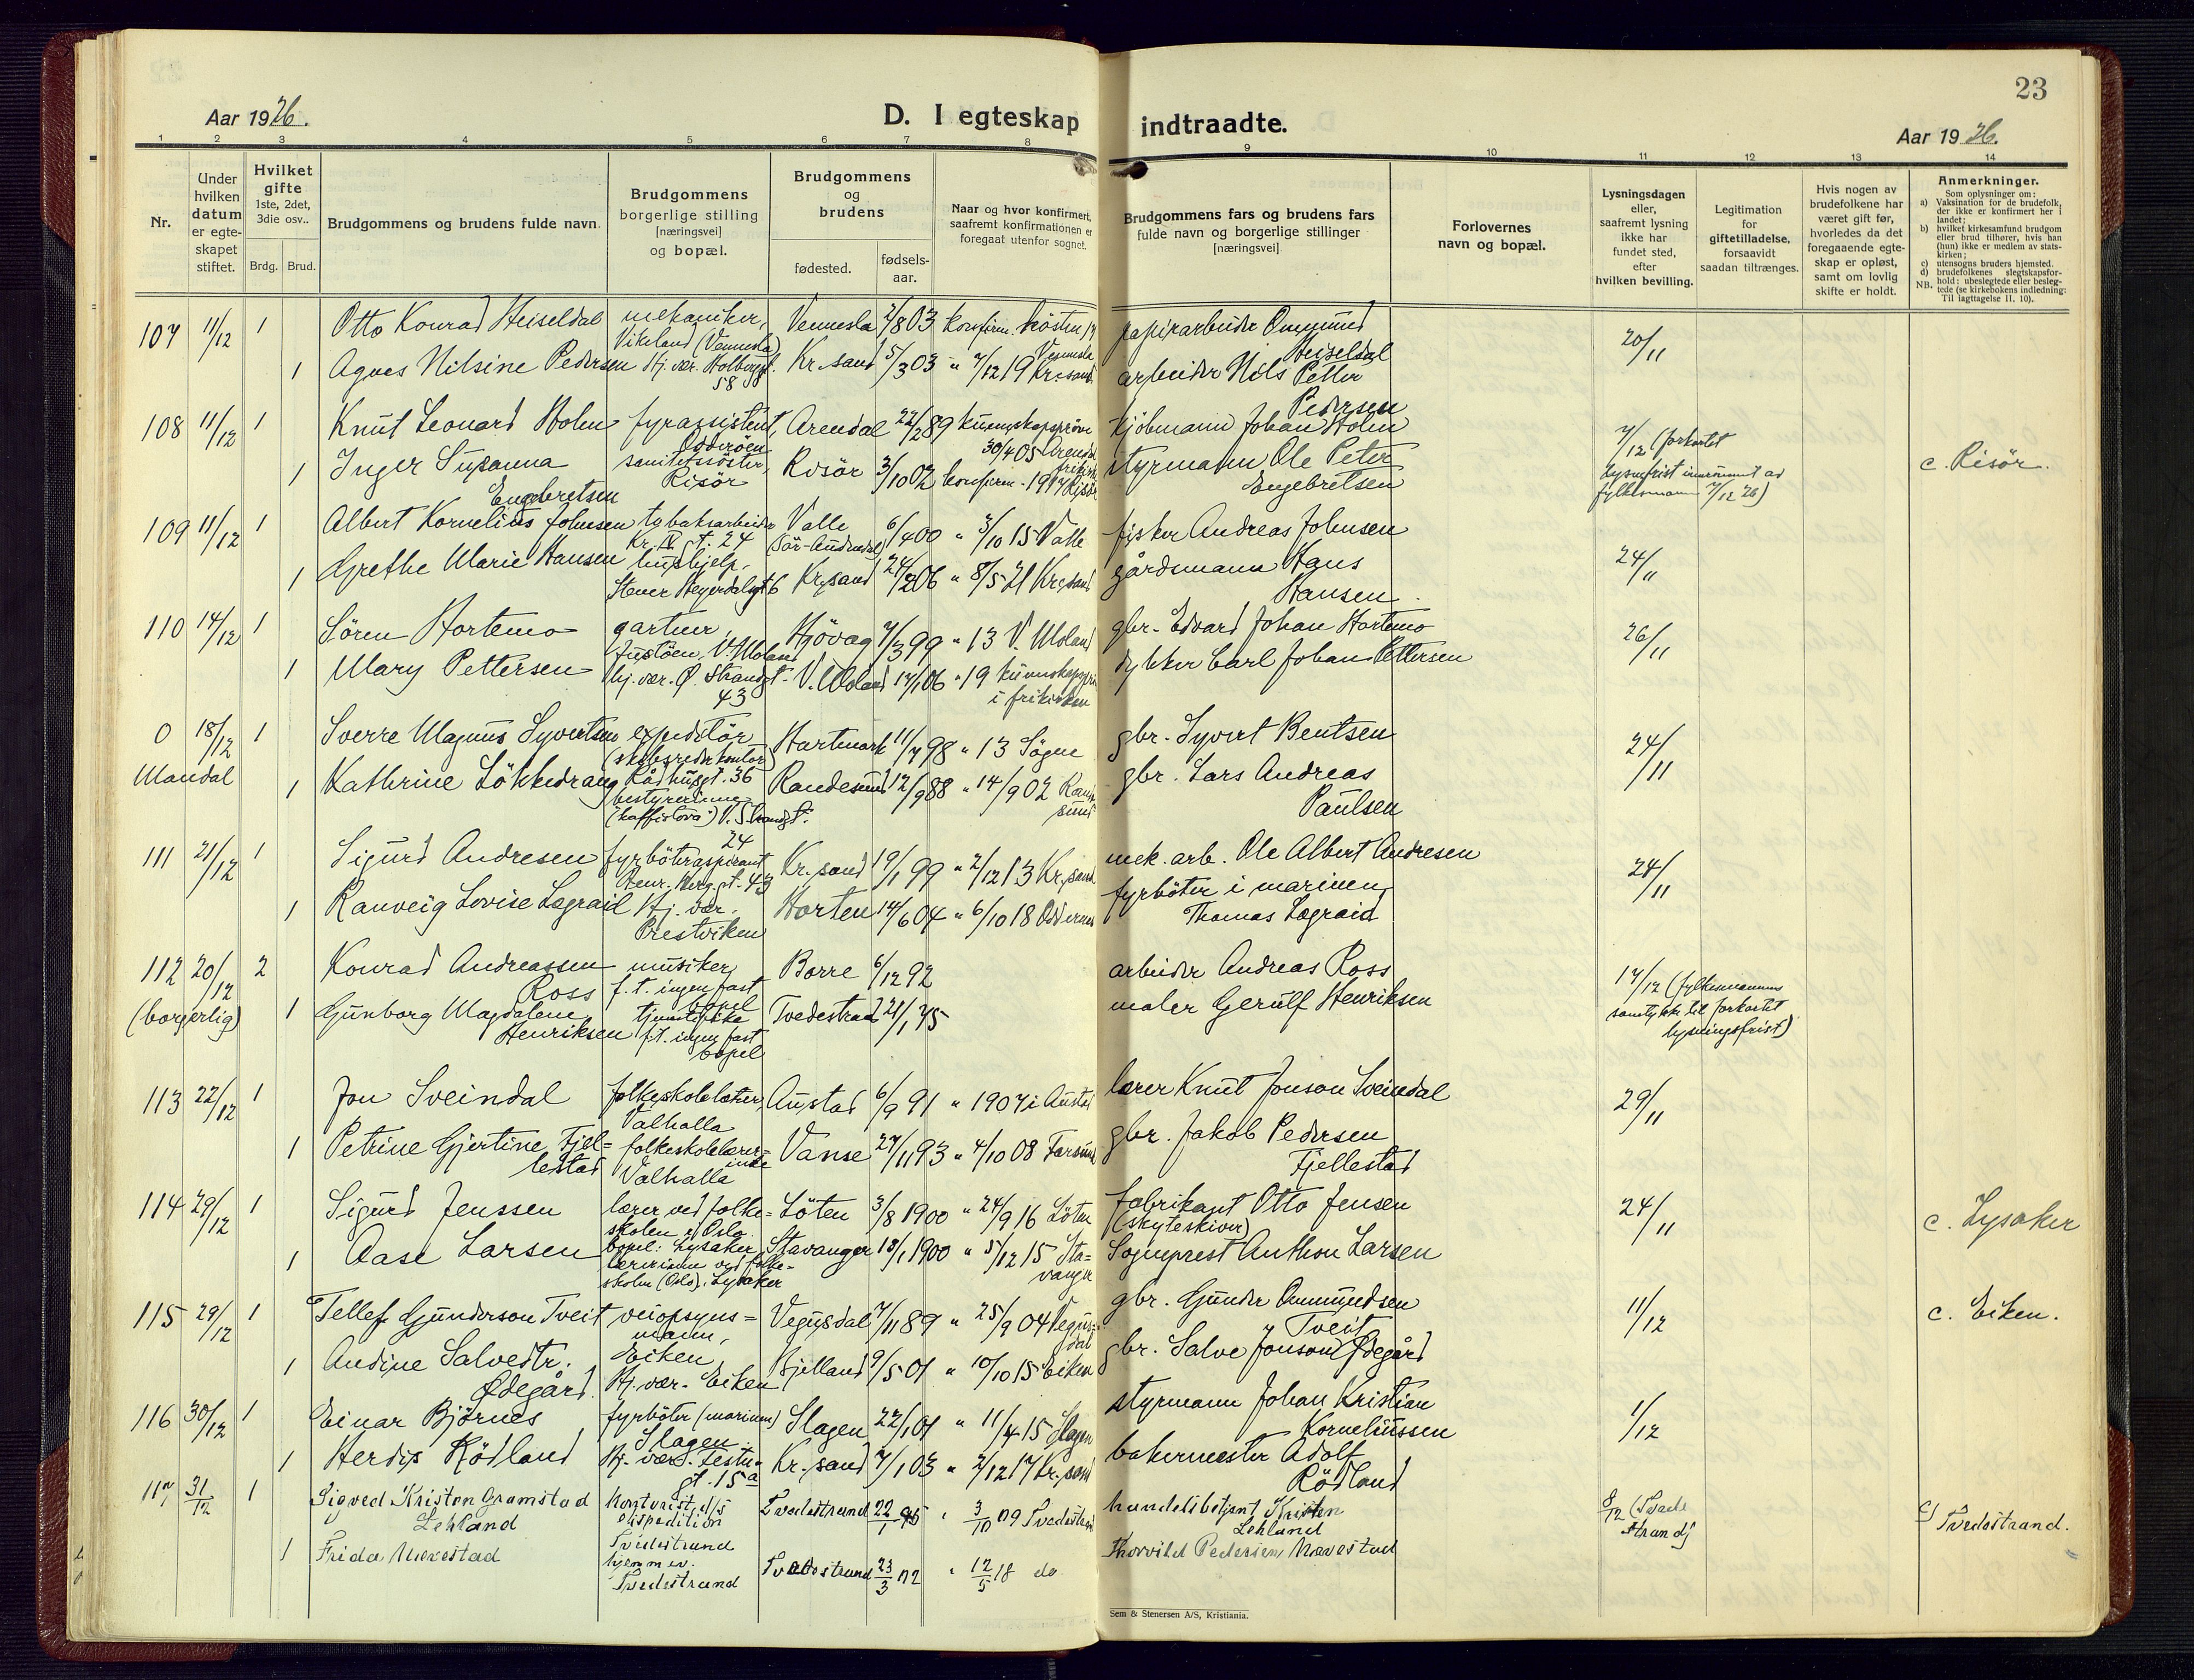 23
Aar 1926.
D. I egteskap indtraadte.
Aar 1926.
1 2 3 4 5 6 7 8 9 10 11 12 13 14
Nr.
Under hvilken datum er egteskapet stiftet.
Hvilket gifte 1ste, 2det, 3die osv..
Brdg. Brud.
Brudgommens og brudens fulde navn.
Brudgommens borgerlige stilling [næringsvei] og bopæl.
Brudgommens og brudens
fødested.
fødselsaar.
Naar og hvor konfirmert, saafremt konfirmationen er foregaat utenfor sognet.
Brudgommens fars og brudens fars fulde navn og borgerlige stillinger [næringsvei]
Forlovernes navn og bopæl.
Lysningsdagen eller, saafremt lysning ikke har fundet sted, efter hvilken bevilling.
Legitimation for giftetilladelse, forsaavidt saadan tiltrænges.
Hvis nogen av brudefolkene har været gift før, hvorledes da det foregaaende egteskap er opløst, samt om lovlig skifte er holdt.
Anmerkninger.
Som oplysninger om:
a) Vaksination for de brudefolk, der ikke er konfirmert her i landet;
b) hvilket kirkesamfund brudgom eller brud tilhører, hvis han (hun) ikke er medlem av statskirken;
c) utensogns bruders hjemsted.
d) brudefolkenes slegtskapsforhold: ubeslegtede eller beslegtede (se kirkebokens indledning: Til iagttagelse II. 10).
NB.
107 11/12 1 Otto Konrad Heiseldal mekaniker, Vikeland (Vennesla) Vennesla 7/8 03 konfirm. høsten 17 Vennesla papirarbeider Ommund Heiseldal 20/11
1 Agnes Nilsine Pedersen Hj. vær. Holbergst. 58 Kr.sand 5/3 03 " 7/12 19 Kr.sand arbeider Nils Petter Pedersen
108 11/12 1 Knut Leonard Holm fyrassistent, Odderøen Arendal 22/2 89 kunnskapsprøve 30/4 05 Arendal frikirke kjøbmann Johan Holm 7/12 (forkortet lysnfrist innrømmet av fylkesmann 7/12 26) c. Risør.
1 Inger Susanna Engebretsen sanitetssøster, Risør Risör 3/10 02 konfirm. 1917 Risør styrmann Ole Peter Engebretsen
109 11/12 1 Albert Kornelius Johnsen tobaksarbeider Kr. IV gt. 24 Valle (Sør-Audnedal) 6/4 00 " 3/10 15 Valle fisker Andreas Johnsen 24/11
1 Grethe Marie Hansen hushjelp. Stener Heyerdalsgt 6 Kr.sand 24/2 06 " 8/5 21 Kr.sand gårdsmann Hans Hansen.
110 14/12 1 Sören Hortemo gartner, Justöen, V. Moland Høvåg 7/3 99 " 13 V. Moland gbr. Edvard Johan Hortemo 26/11
1 Mary Pettersen hj. vær. Ø. Strandgt. 43 V. Moland 17/1 06 " 19 kunnskapspr. i frikirken dykker Carl Johan Pettersen
0 Mandal 18/12 1 Sverre Magnus Syvertsen expeditør (skibsrederkontor) Rådhusgt. 36 Hartmark 11/7 98 " 13 Søgne gbr. Syvert Bentsen 24/11
1 Kathrine Løkkedrang bestyrerinne ("kaffistova") V. Strandgt. 24 Randesund 12/9 88 " 14/9 02 Randesund gbr. Lars Andreas Paulsen
111 21/12 1 Sigurd Andresen fyrbøteraspirant Henr. Werg.gt. 43 Kr.sand 19/1 99 " 2/12 13 Kr.sand mek. arb. Ole Albert Andresen 24/11
1 Ranveig Lovise Lægraid Hj. vær. Prestviken Horten 14/6 04 " 6/10 18 Oddernes fyrbøter i marinen, Thomas Lægraid
112 (borgerlig) 20/12 2 Konrad Andreassen Ross musiker f.t. ingen fast bopel Borre 6/12 92 arbeider Andreas Ross 17/12 (fylkesmannens samtykke til forkortet lysningsfrist)
1 Gunborg Magdalene Henriksen tjenestepike f.t. ingen fast bopel Tvedestrand 21/1 75 maler Gerulf Henriksen
113 22/12 1 Jon Sveindal folkeskolelærer, Valhalla Austad 6/9 91 " 1907 i Austad lærer Knut Jonson Sveindal 29/11
1 Petrine Gjertine Fjellestad folkeskolelærerinde Valhalla Vanse 27/11 93 " 4/10 08 Farsund gbr. Jakob Pedersen Fjellestad
114 29/12 1 Sigurd Jenssen lærer ved folkeskolen i Oslo bopel: Lysaker Løten 3/8 1900 " 24/9 16 Løten fabrikant Otto Jensen (skyteskiver) 24/11 c. Lysaker
1 Aase Larsen lærerinne ved folkeskolen (Oslo), Lysaker Stavanger 18/1 1900 " 5/12 15 Stavanger Sogneprest Anthon Larsen
115 29/12 1 Tellef Gunderson Tveit veiopsynsmann, Eiken Vegusdal 7/11 89 " 25/9 04 Vegusdal gbr. Gunder Ommundsen Tveit 11/12 c. Eiken.
1 Andine Salvestr. Ødegård. Hj. vær. Eiken Bjelland 9/5 01 " 10/10 15 Eiken gbr. Salve Jonson Ødegård
116 30/12 1 Einar Bjørnes fyrbøter (marinen) Slagen Slagen 22/1 01 " 11/4 15 Slagen styrmann Johan Kristian Korneliussen 1/12
1 Herdis Rødland Hj. vær. Festn.gt. 15a Kr.sand 7/1 03 " 2/12 17 Kr.sand bakermester Adolf Rødland
117 31/12 1 Sigved Kristen Gramstad Lekland Kontorist, d/s ekspedition Tvedestrand Tvedestrand 22/1 95 " 3/10 09 Tvedestrand handelsbetjent Kristen Lekland 8/12 (Tvedestrand) c) Tvedestrand.
1 Frida Nævestad hjemmev. Tvedestrand Tvedestrand 23/3 02 " 12/5 18 do Thorvild Pedersen Nævestad
Sem & Stenersen A/S, Kristiania.